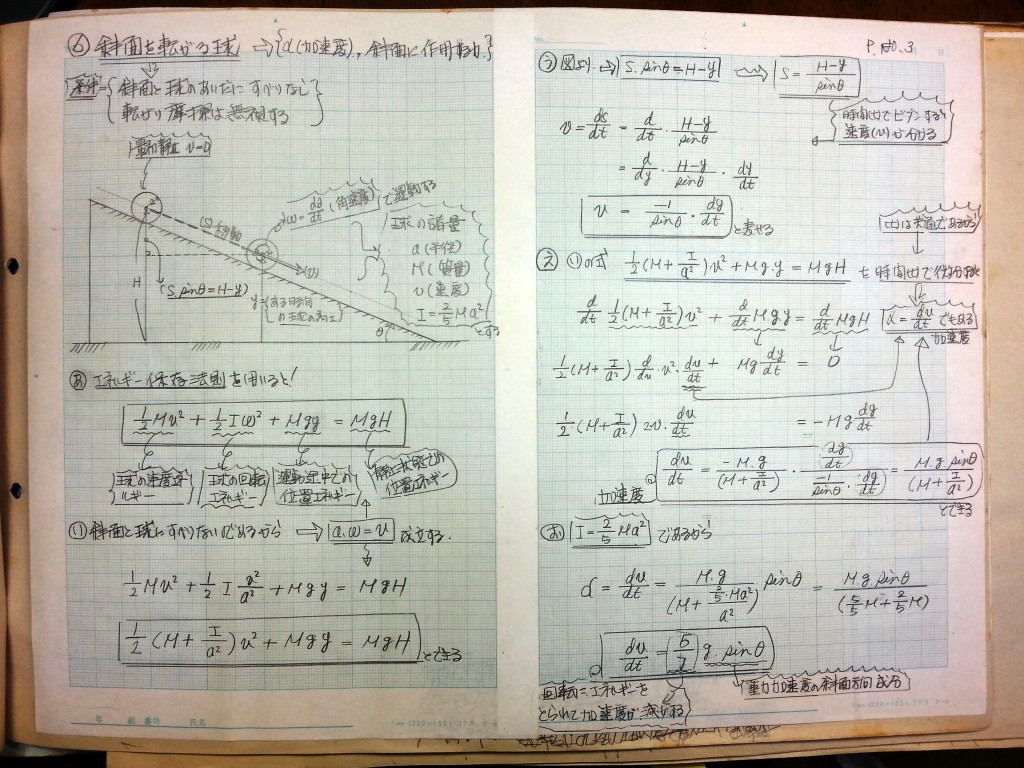 ⑥ 斜面を転がる球 ⇒ {α(加速度), 斜面に作用する力.}
条件 {斜面と球のあいだに すべりなし
転がり摩擦は無視する}
最初静止 v=0
(S) 移動
ω = dθ/dt (角速度) で運動する
(v)
H
S.sinθ=H-y
y=(ある時間の球の高さ)
θ
球の諸量
a (半径)
M (質量)
v (速度)
I = 2/5 Ma² とする
あ エネルギー保存法則を用いると!
1/2 Mv² + 1/2 Iω² + Mgy = MgH
球の速度エネルギー
球の回転エネルギー
運動途中での位置エネルギー
静止状態での位置エネルギー
い 斜面と球にすべりないであるから ⇒ a.ω = v 成立する.
1/2 Mv² + 1/2 I v²/a² + Mgy = MgH
1/2 (M + I/a²) v² + Mgy = MgH とできる
年 組 番号 氏名
P. No. 3
う 図より. ⇒ S.sinθ=H-y ⇒ S = H-y/sinθ
時間(t)でビブンする
速度(v)が分かる
v = ds/dt = d/dt · H-y/sinθ
= d/dy · H-y/sinθ · dy/dt
v = -1/sinθ · dy/dt と表せる
(t)は共通であるから
え (い)の式 1/2 (M + I/a²) v² + Mg.y = MgH を時間(t)で微分すると
d/dt 1/2 (M + I/a²) v² + d/dt Mg.y = d/dt MgH
α = dv/dt でもある
加速度
1/2 (M + I/a²) d/dv · v² · dv/dt + Mg dy/dt = 0
1/2 (M + I/a²) 2v · dv/dt = -Mg dy/dt
加速度
dv/dt = -M.g/(M + I/a²) · dy/dt / (-1/sinθ · dy/dt) = M.g.sinθ/(M + I/a²) とできる
お I = 2/5 Ma² であるから
α = dv/dt = M.g/(M + 2/5·Ma²/a²) · sinθ = M.g.sinθ/(5/5 M + 2/5 M)
dv/dt = 5/7 g.sinθ
回転にエネルギーを
とられて加速度が減少する
重力加速度の斜面方向成分